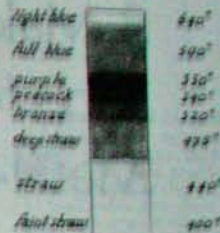 light blue 640°
full blue 590°
purple 550°
peacock 540°
bronze 520°
deep straw 475°
straw 440°
faint straw 400°